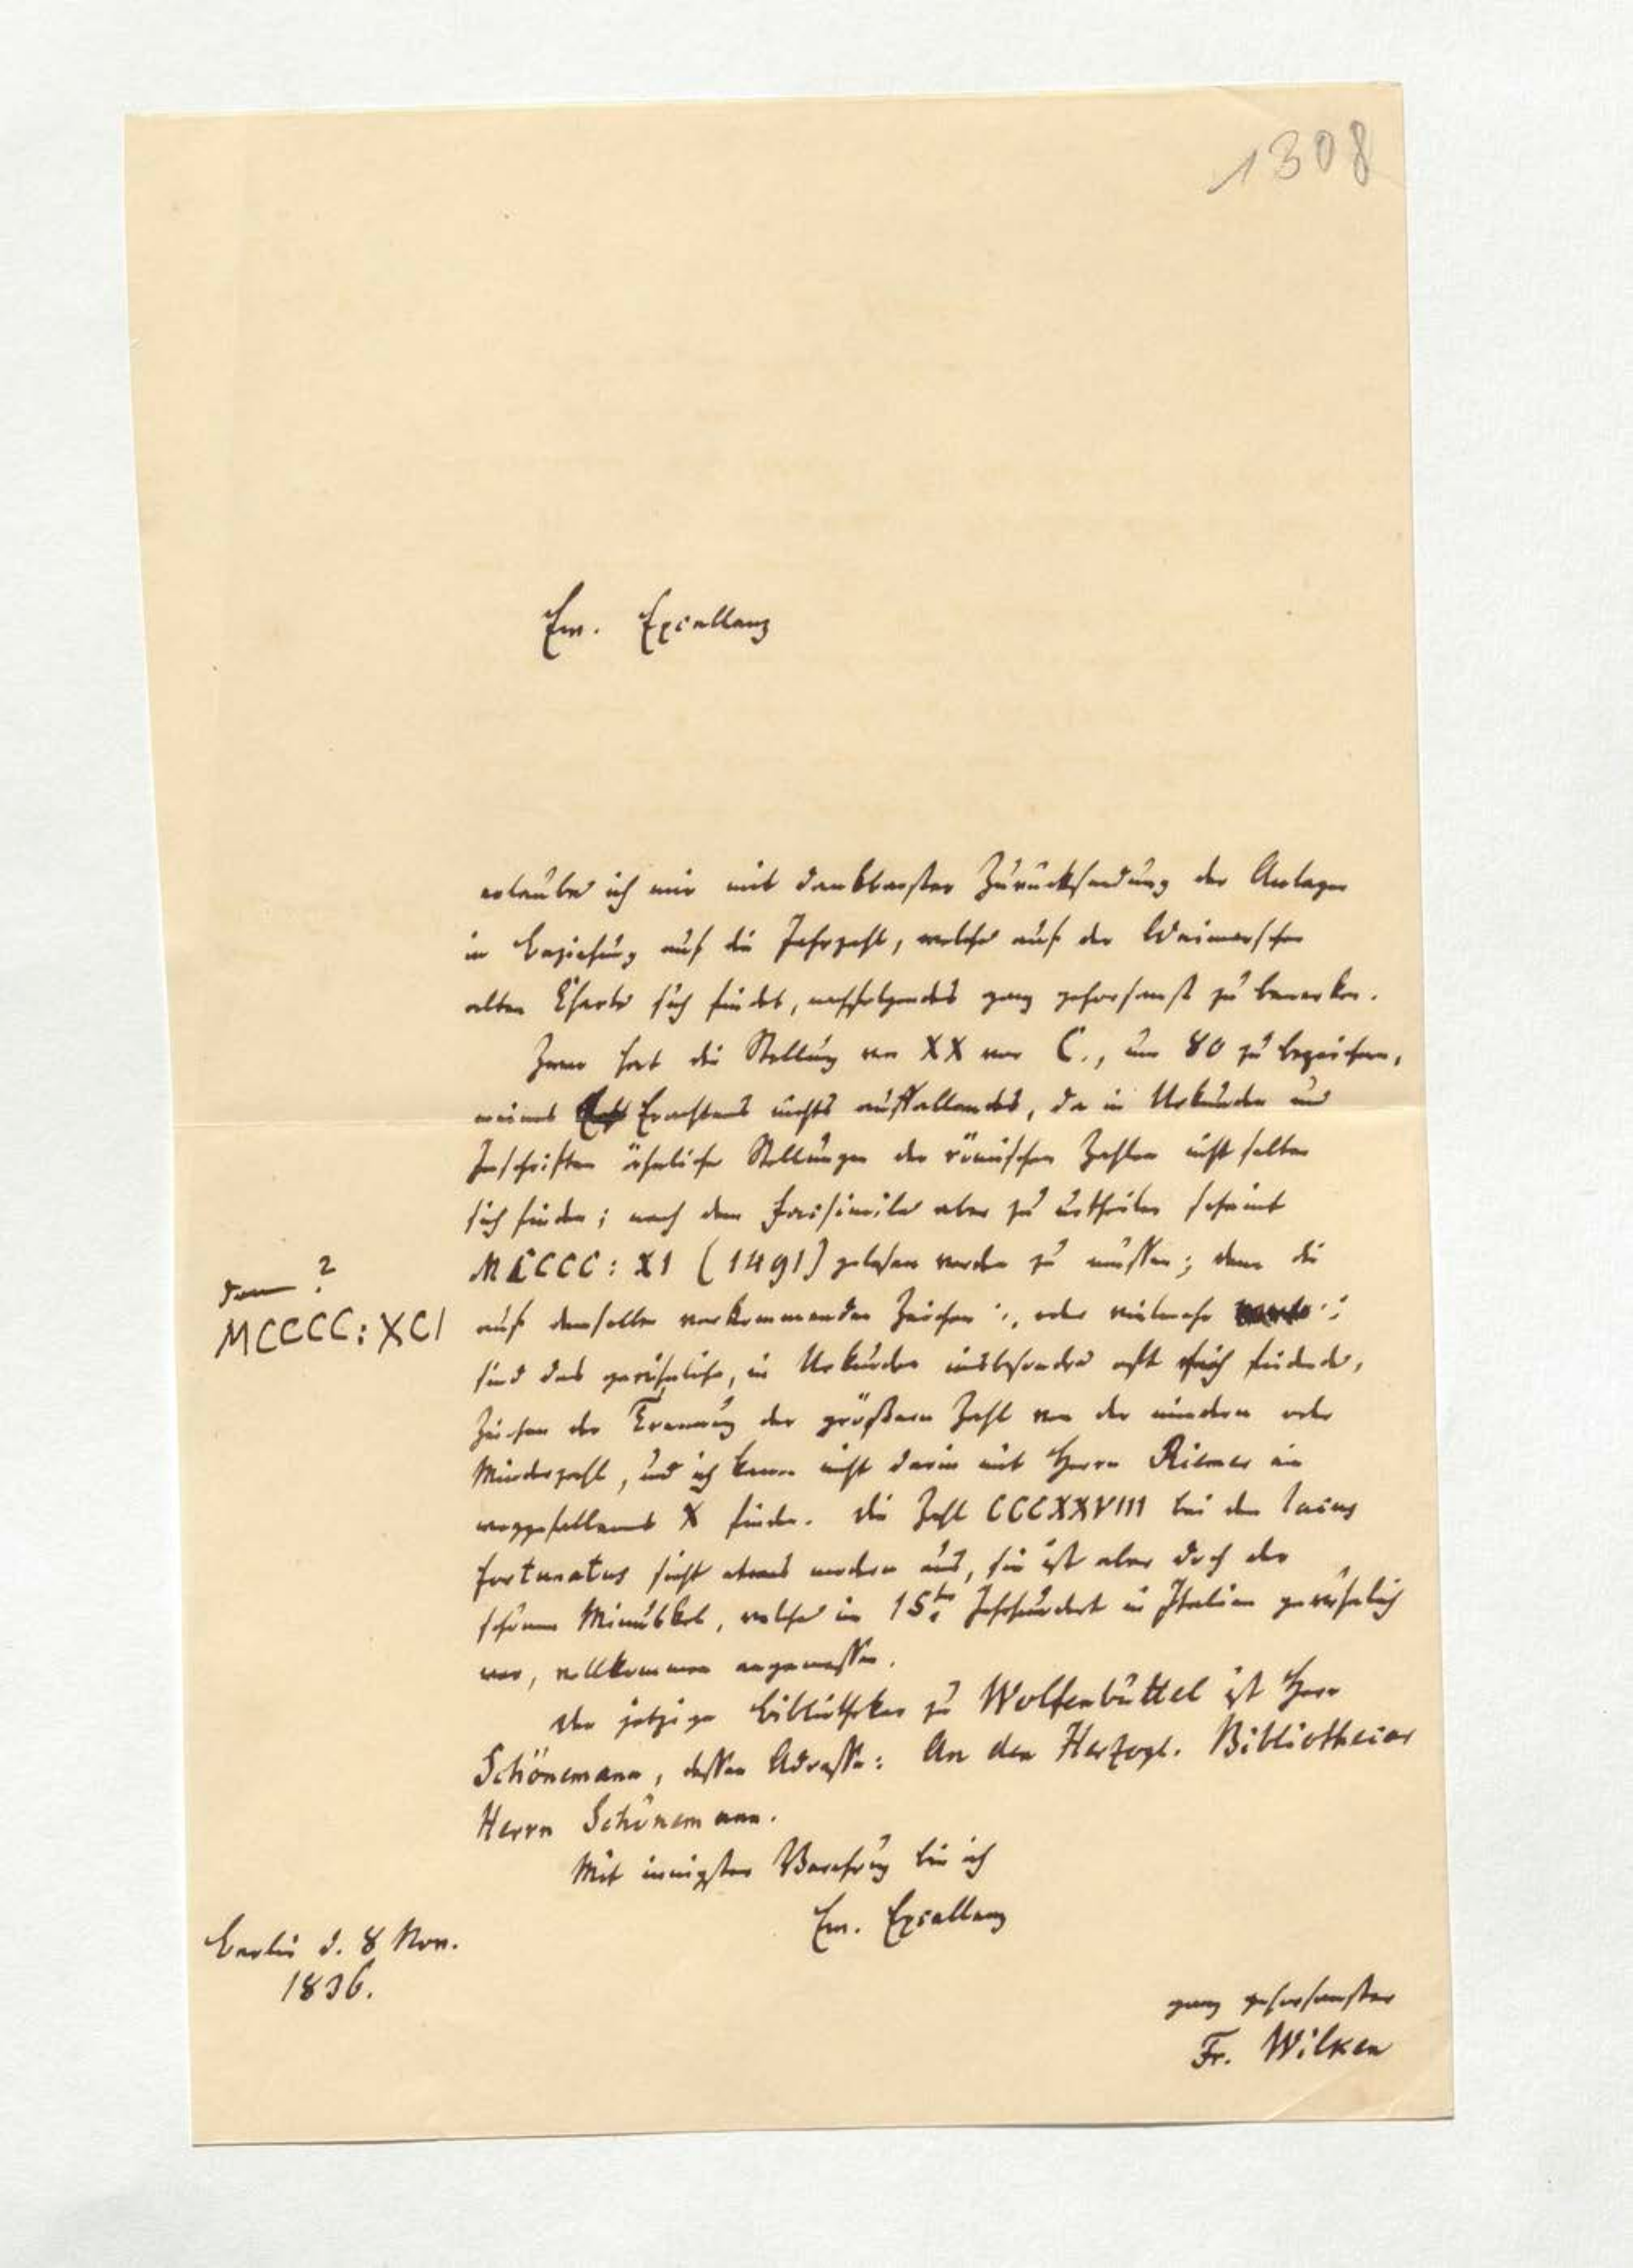 1308
Ew. Excellenz
erlaube ich mir mit dankbarster Zurücksendung der Anlagen
in Beziehung auf die Jahrzahl, welche auf der Weimarschen
alten Charte sich findet, nachfolgendes ganz gehorsamst zu bemerken.
Zwar hat die Stellung von XX vor C., um 80 zu bezeichnen,
meines Erachtens nichts auffallendes, da in Urkunden und
Inschriften ähnliche Stellungen der römischen Zahlen nicht selten
sich finden; nach dem Facsimile aber zu urtheilen scheint
MCCCC: XI (1491) gelesen werden zu müssen; denn die
auf demselben vorkommenden Zeichen :, oder vielmehr :
sind das gewöhnliche, in Urkunden insbesondre oft sich findende,
Zeichen der Trennung der größern Zahl von der mindern oder
Minderzahl, und ich kann nicht darin mit Herrn Riemer ein
weggefallenes X finden. Die Zahl CCCXXVIII bei den
fortunatus sieht etwas modern aus, sie ist aber doch der
schönen Minuskel, welche im 15ten Jahrhundert in Italien gewöhnlich
war, vollkommen angemessen.
Der jetzige Bibliothekar zu Wolfenbüttel ist Herr
Schönemann, dessen Adresse: An den Herzogl. Bibliothecar
Herrn Schönemann.
Mit innigster Verehrung bin ich
Ew. Excellenz
ganz gehorsamster
Fr. Wilken
Berlin d. 8 Nov.
1836.
?
MCCCC: XCI